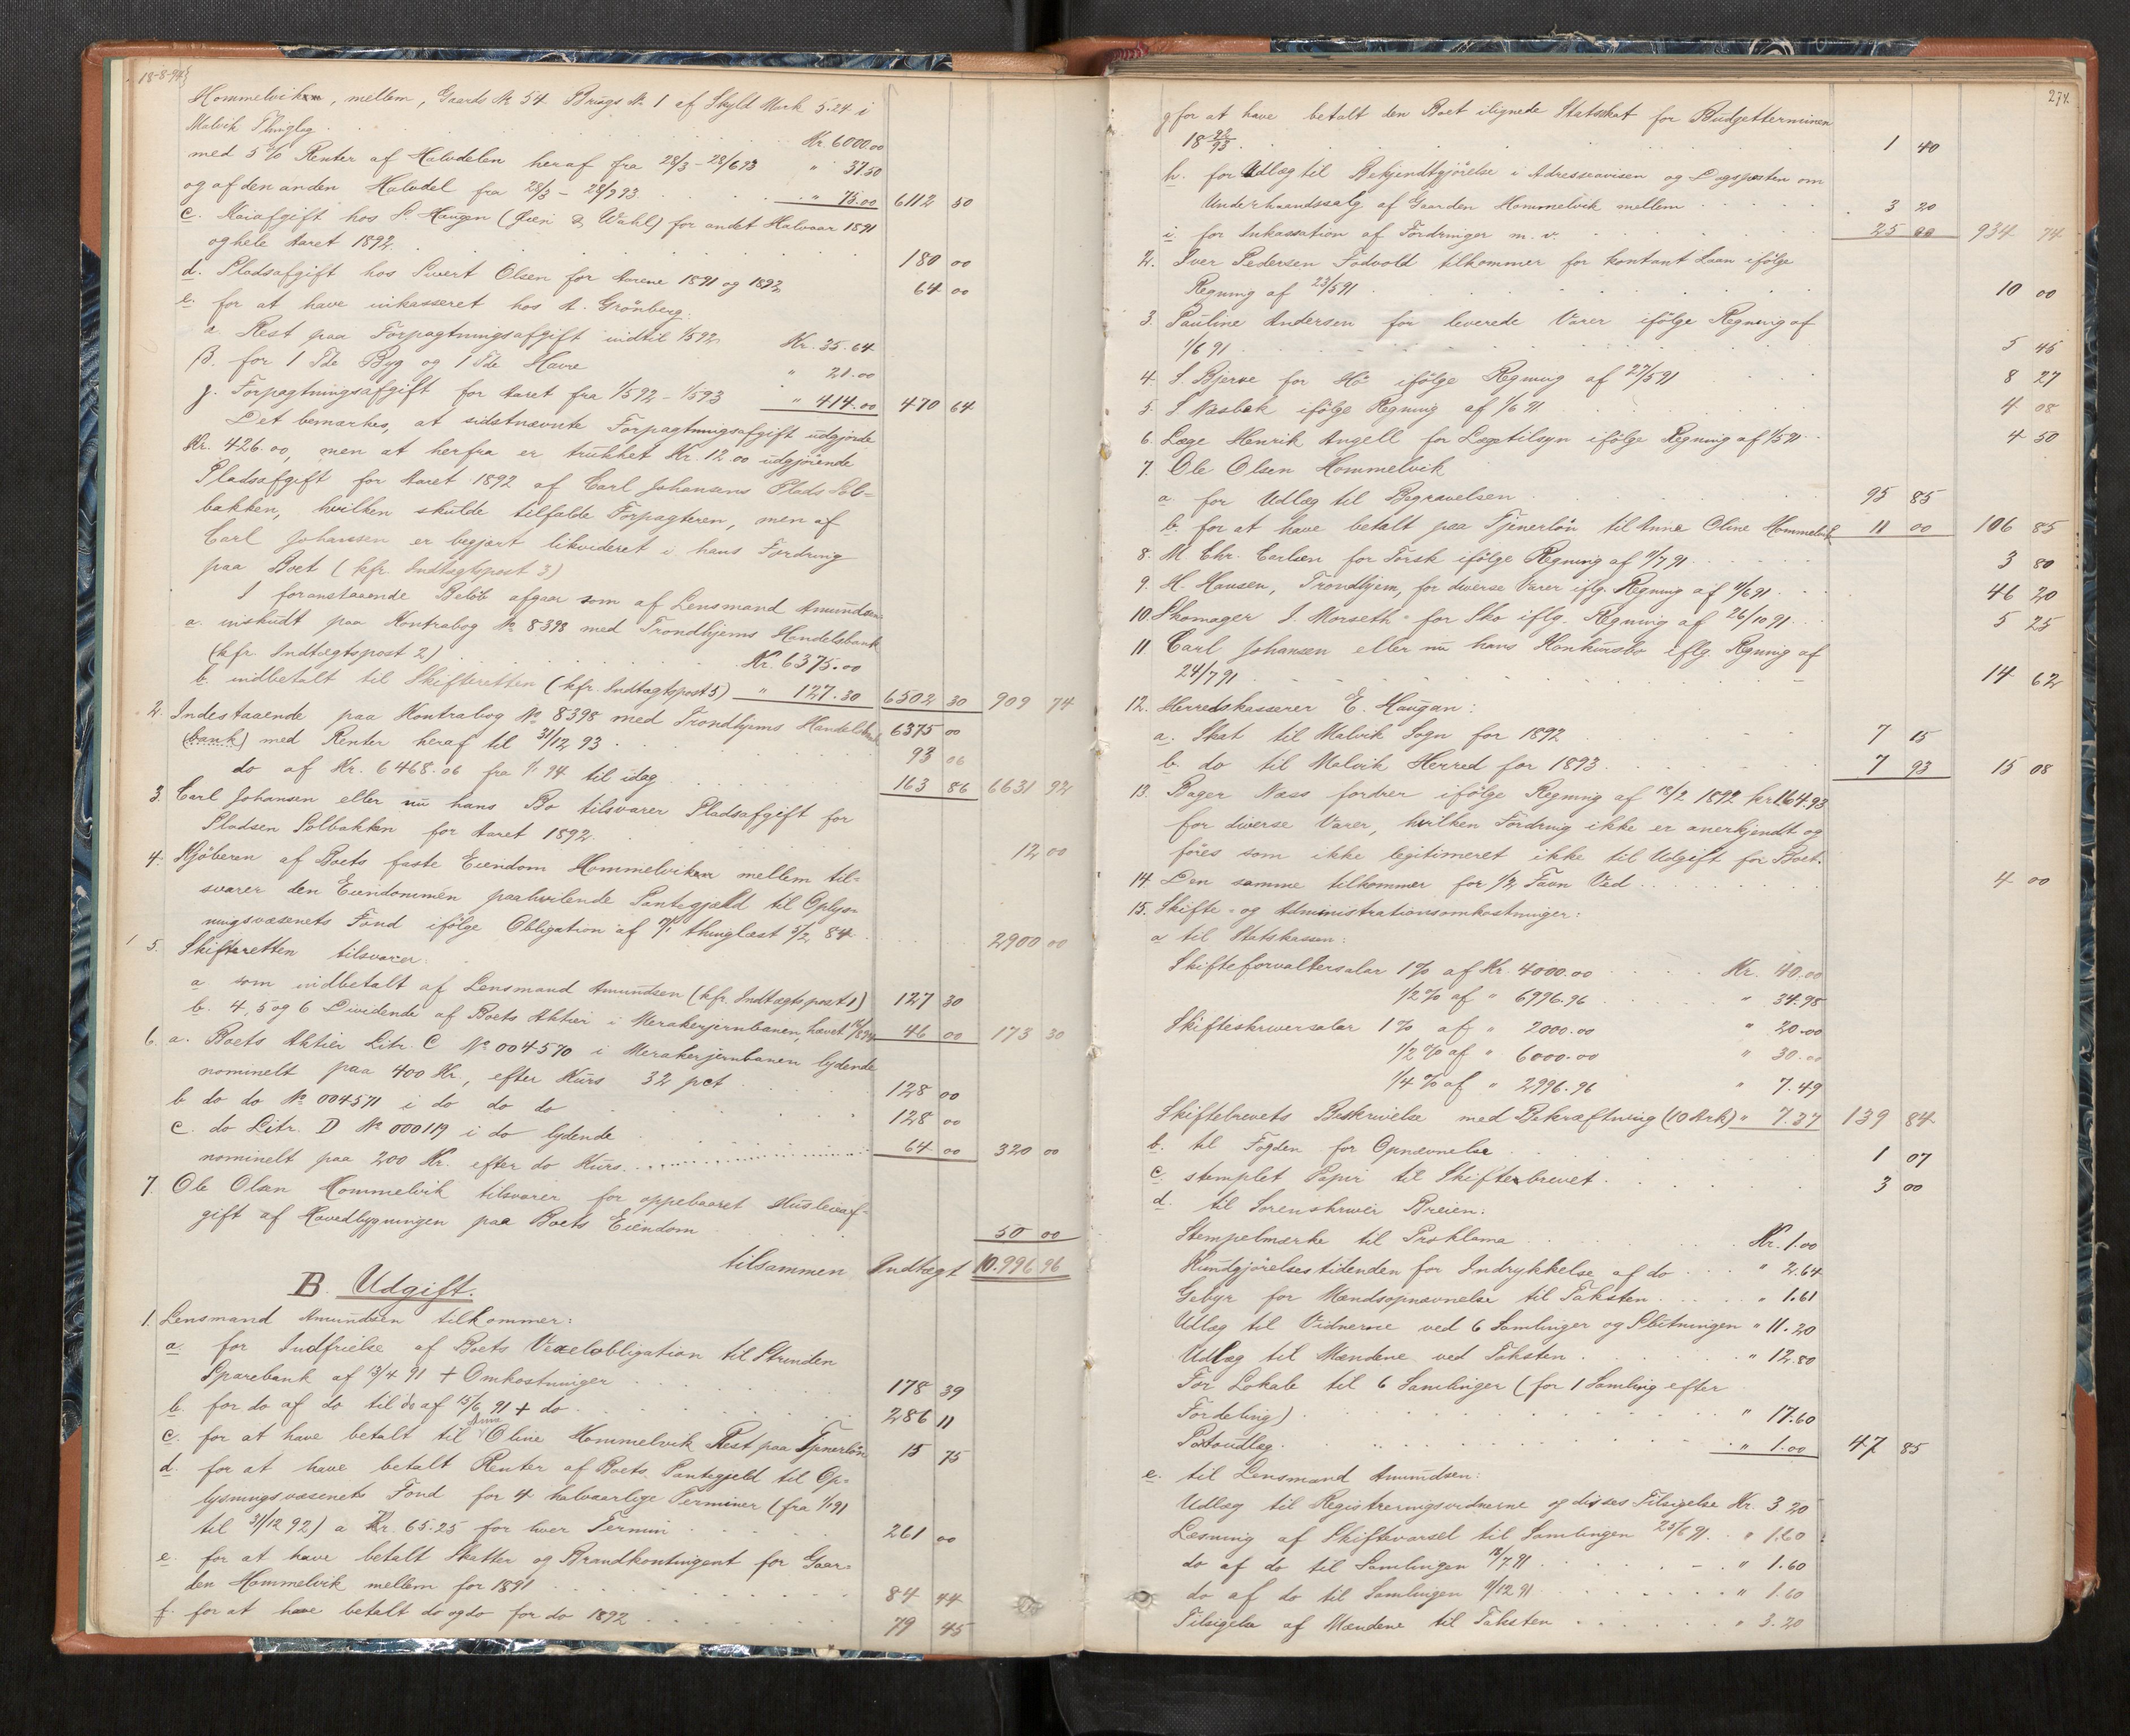 18-8-94
Hommelviken, mellem, Gaards No 54 Brugs No 1 af Skyld Mark 5.24 i
Malvik Thinglag . . . Kr. 6000.00
med 5% Renter af Halvdelen heraf fra 28/3 - 28/6 93 " 37.50
og af den anden Halvdel fra 28/3 - 28/9 93 . . . " 75.00 6112 50
c. Kaiafgift hos P. Haugen (Jæri & Wahl) for andet Halvaar 1891
og hele Aaret 1892 . . . 180 00
d. Pladsafgift hos Sivert Olsen for Aarene 1891 og 1892 64 00
e. for at have inkasseret hos A. Grönberg:
a. Rest paa Forpagtningsafgift indtil 1/5 92 Kr. 35.64
β. for 1 Tde Byg og 1 Tde Havre " 21.00
γ. Forpagtningsafgift for Aaret fra 1/5 92 - 1/5 93 " 414.00 470 64
Det bemærkes, at sidstnævnte Forpagtningsafgift udgjorde
Kr. 426.00, men at herfra er trukket Kr. 12.00 udgjörende
Pladsafgift for Aaret 1892 af Carl Johansens Plads Sol=
bakken, hvilken skulde tilfalde Forpagteren, men af
Carl Johansen er begjært likvideret i hans Fordring
paa Boet (kfr. Indtægtspost 3)
I foranstaaende Beløb afgaar som af Lensmand Amundsen
a. indskudt paa Kontrabog No 8398 med Trondhjems Handelsbank
(kfr. Indtægtspost 2) . . . Kr. 6375.00
b. indbetalt til Skifteretten (kfr. Indtægtspost 5) " 127.30 6502 30 909 74
2. Indestaaende paa Kontrabog No 8398 med Trondhjems Handelsbank 6375 00
(bank) med Renter heraf til 31/12 93 . . . 93 06
do af Kr. 6468.06 fra 1/1 94 til idag . . . 163 86 6631 92
3. Carl Johansen eller nu hans Bo tilsvarer Pladsafgift for
Pladsen Solbakken for Aaret 1892 . . . 12 00
4. Kjöberen af Boets faste Eiendom Hommelviken mellem til=
svarer den Eiendommen paahvilende Pantegjæld til Oplys=
ningsvæsenets Fond ifölge Obligation af thinglæst 5/2 84 2900 00
5. Skifteretten tilsvarer:
a. som indbetalt af Lensmand Amundsen (kfr. Indtægtspost 1) 127 30
b. 4, 5 og 6 Dividende af Boets Aktier i Merakerjernbanen, hævet 46 00 173 30
6. a. Boets Aktier Litr. C No 004570 i Merakerjernbanen lydende
nominelt paa 400 Kr., efter Kurs 32 pct . . . 128 00
b do do No 004571 i do do do . . . 128 00
c. do Litr. D No 000119 i do lydende
nominelt paa 200 Kr. efter do Kurs . . . 64 00 320 00
7. Ole Olsen Hommelvik tilsvarer for oppebaaret Husleieaf=
gift af Hovedbygningen paa Boets Eiendom . . . 50 00
tilsammen Indtægt 10.996 96
B. Udgift.
1. Lensmand Amundsen tilkommer:
a. for Indfrielse af Boets Vexelobligation til Strinden
Sparebank af 13/4 91 + Omkostninger . . . 178 39
b. for do af do til do af 15/6 91 + do . . . 286 11
c. for at have betalt til Anna Oline Hommelvik Rest paa Tjenerlön 15 75
d. for at have betalt Renter af Boets Pantegjeld til Op=
lysningsvæsenets Fond for 4 halvaarlige Terminer (fra 1/1 91
til 31/12 92) a Kr. 65.25 for hver Termin . . . 261 00
e. for at have betalt Skatter og Brandkontingent for Gaar=
den Hommelvik mellem for 1891 . . . 84 44
f. for at have betalt do og do for do 1892 . . . 79 45
274.
g for at have betalt den Boet ilignede Statsskat for Budgetterminen
18 92/93 . . . 1 40
h. for Udlæg til Bekjendtgjörelse i Adresseavisen og Dagsposten om
Underhaandssalg af Gaarden Hommelvik mellem . . . 3 20
i for Inkassation af Fordringer m. v. . . . 25 00 934 74
2. Iver Pedersen Fodvold tilkommer for kontant Laan ifölge
Regning af 23/5 91 . . . 10 00
3. Pauline Andersen for leverede Varer ifölge Regning af
1/6 91 . . . 5 45
4. S. Bjerve for Hö ifölge Regning af 27/5 91 . . . 8 27
5. S. Næsbak ifölge Regning af 1/6 91 . . . 4 08
6. Læge Henrik Angell for Lægetilsyn ifölge Regning af 1/5 91 4 50
7. Ole Olsen Hommelvik
a for Udlæg til Begravelsen . . . 95 85
b for at have betalt paa Tjenerlön til Anna Oline Hommelvik 11 00 106 85
8. M. Chr. Carlsen for Torsk ifölge Regning af 11/7 91 . . . 3 80
9. H. Hansen, Trondhjem, for diverse Varer iflg. Regning af 11/6 91 46 20
10. Skomager J. Morseth for Sko iflg. Regning af 26/10 91 5 25
11 Carl Johansen eller nu hans Konkursbo iflg. Regning af
24/7 91 . . . 14 62
12. Herredskasserer E. Haugan:
a. Skat til Malvik Sogn for 1892 . . . 7 15
b. do til Malvik Herred for 1893 . . . 7 93 15 08
13. Bager Næss fordrer ifölge Regning af 18/2 1892 kr 164.93
for diverse Varer, hvilken Fordring ikke er anerkjendt og
föres som ikke legitimeret ikke til Udgift for Boet.
14 Den samme tilkommer for 1/2 Favn Ved . . . 4 00
15. Skifte- og Administrationsomkostninger:
a til Statskassen:
Skifteforvaltersalar 1% af Kr. 4000.00 Kr. 40.00
1/2% af " 6996.96 " 34.98
Skifteskriversalar 1% af " 2000.00 " 20.00
1/2% af " 6000.00 " 30.00
1/4% af " 2996.96 " 7.49
Skiftebrevets Beskrivelse med Bekræftning (10 Ark) " 7.37 139 84
b. til Fogden for Opnævnelse . . . 1 07
c. stemplet Papir til Skiftebrevet . . . 3 00
d. til Sorenskriver Breien:
Stempelmærke til Proklama . . . Kr. 1.00
Kundgjörelsestidenden for Indrykkelse af do . . . " 2.64
Gebyr for Mændsopnævnelse til Taksten . . . " 1.61
Udlæg til Vidnerne ved 6 Samlinger og Slutningen " 11.20
Udlæg til Mændene ved Taksten . . . " 12.80
For Lokale til 6 Samlinger (for 1 Samling efter
Fordeling) . . . " 17.60
Portoudlæg . . . " 1.00 47 85
e. til Lensmand Amundsen:
Udlæg til Registreringsvidnerne og disses Tilsigelse Kr. 3 20
Læsning af Skiftevarsel til Samlingen 25/6 91 . " 1.60
do af do til Samlingen 18/7 91 . . . " 1.60
do af do til Samlingen 11/12 91 . . . " 1.60
Tilsigelse af Mændene til Taksten . . . " 3.20